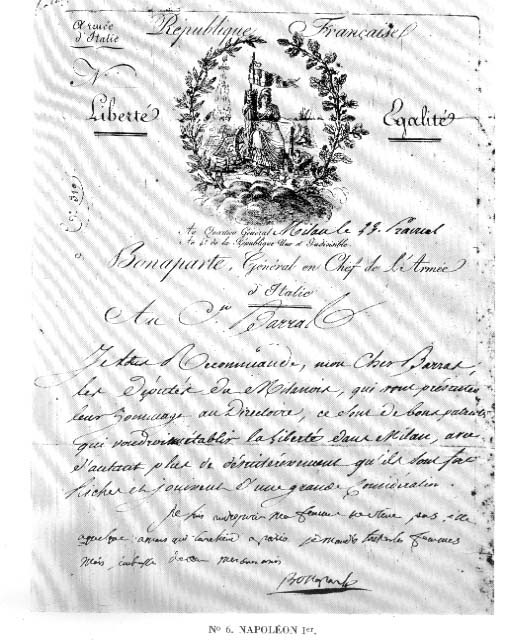 Armée
d'Italie
République Française
N°
Liberté Egalité
Au Quartier Général Milan le Prairial
An 4e de la République Une et Indivisible.
Bonaparte, Général en Chef de l'Armée
d'Italie
Au C.en Barras
Je Recommande, mon Cher Barras,
les députés du Milanois, qui vont présenter
leur hommage au Directoire, ce sont de bons patriotes
qui voudroient établir la liberté dans Milan, avec
d'autant plus de désintéressement qu'ils sont fort
Riches et jouissent d'une grande Considération.
Je suis ma femme ne vient pas, elle
a quelque amant qui a paris je maudis toutes les femmes
mais
No 6. NAPOLÉON Ier.